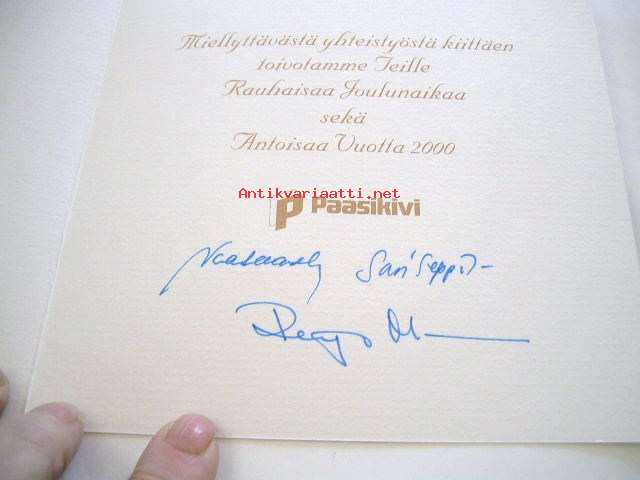 Miellyttävästä yhteistyöstä kiittäen
toivotamme Teille
Rauhaisaa Joulunaikaa
sekä
Antoisaa Vuotta 2000
Antikvariaatti.net
Paasikivi
Sari